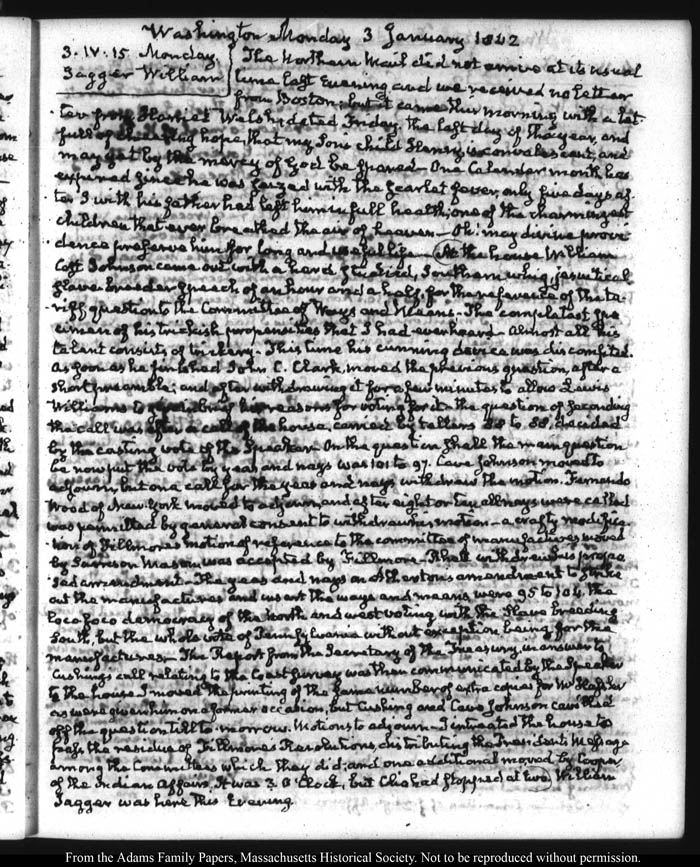 Washington Monday 3 January 1842
3. IV. 15. Monday.
Jagger William
The Northern Mail did not arrive at its usual
time last Evening and we received no letter
from Boston; but it came this morning with a let-
ter from Harriet Welsh, dated Friday, the last day of the year, and
full of cheering hope, that my Son's child Henry is convalescent, and
may yet by the mercy of God be spared— One Calendar month has
expired since he was seized with the scarlet fever, only five days af-
ter I with his father had left him in full health, one of the charmingest
children that ever breathed the air of heaven— Oh! may divine provi-
dence preserve him for long and useful life— At the house William
Cost Johnson came out with a hard studied, Southern whig, jesuitical
slave breeder speech of an hour and a half, for the reference of the ta-
riff question to the Committee of Ways and Means— The completest spe-
cimen of his trickish propensities that I had ever heard— Almost all his
talent consists of trickery— This time his cunning device was discomfited.
As soon as he finished John C. Clark, moved the previous question, after a
short preamble; and after withdrawing it for a few minutes to allow Lewis
Williams to give his reasons for voting for it the question of seconding
the call was after a call of the house, carried by tellers to decided
by the casting vote of the Speaker. On the question shall the main question
be now put the vote by yeas and nays was 101 to 97. Cave Johnson moved to
adjourn, but on a call for the yeas and nays withdrew the motion. Fernando
Wood of New York moved to adjourn, and after eight or ten all nays were called
was permitted by general consent to withdraw his motion— a crafty modifica-
tion of Fillmore's motion of reference to the committee of manufactures moved
by Samson Mason was accepted by Fillmore. Rhett withdrew his propo-
sed amendment— The yeas and nays on Atherton's amendment to strike
out the manufactures and insert the ways and means, were 95 to 104. the
loco foco democracy of the North and west voting with the Slave breeding
South, but the whole vote of Pennsylvania without exception being for the
manufactures— The Report from the Secretary of the Treasury, in answer to
Cushing's call relating to the Coast Survey was then communicated by the Speaker
to the house I moved the printing of the same number of extra copies for Mr Hassler
as were given him on a former occasion, but Cushing and Cave Johnson cavilled
off the question till to-morrow. Motions to adjourn— I intreated the house to
pass the residue of Fillmore's Resolutions, distributing the President's Message
among the Committees which they did; and one additional moved by Cooper
of the Indian Affairs. It was 3 O'Clock, but Chis had stopped at two. William
Jagger was here this Evening
From the Adams Family Papers, Massachusetts Historical Society. Not to be reproduced without permission.